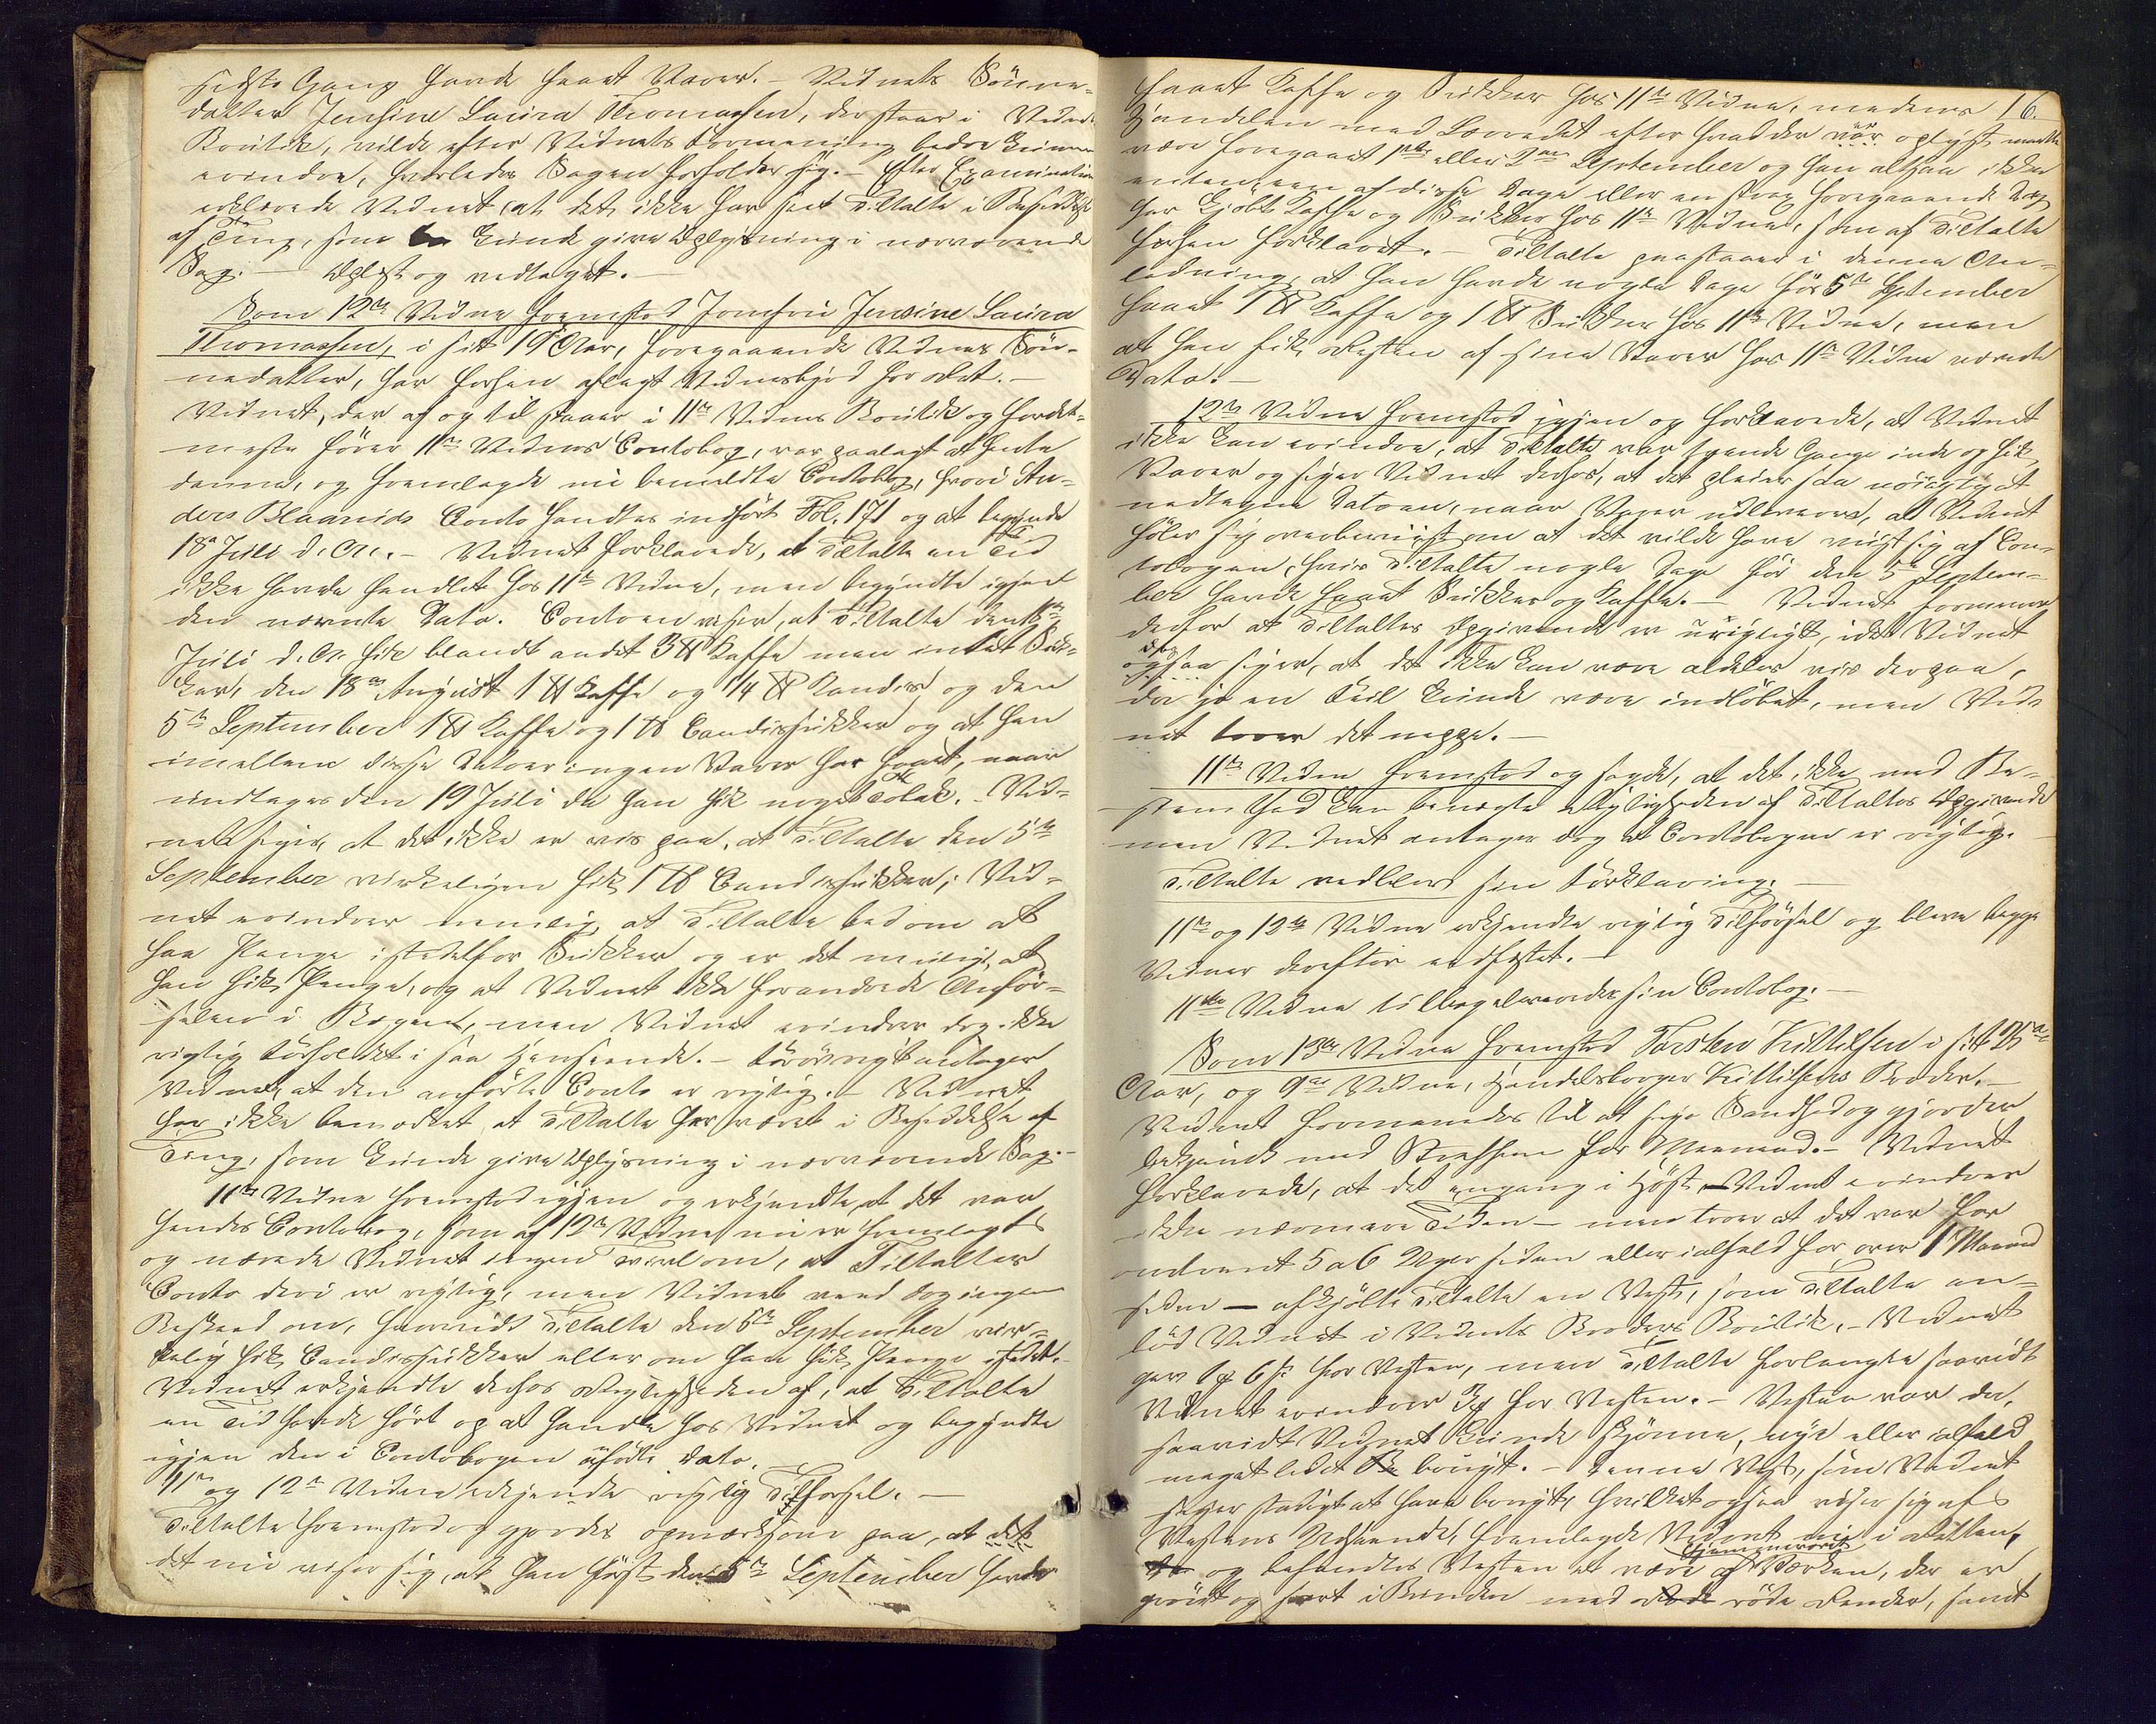 sidste Gang havde faaet Varer. – Vidnets Sönne-
datter Jensine Laura Thomassen, der staar i Vidnets
Boutik, vilde efter Vidnets Formening bedre kunne
erindre, hvorledes Sagen forholder sig. – Efter Examination
erklærede Vidnet, at det ikke har seet Tiltalte i Besiddelse
af Ting, som kunde give Oplysning i nærværende
Sag. – Oplæst og vedtaget. –
Som 12te Vidne fremstod Jomfru Jensine Laura
Thomassen, i sit 19de Aar, foregaaende Vidnes Sön-
nedatter, har forhen aflagt Vidnesbyrd for Ret. –
Vidnet, der af og til staar i 11te Vidnes Boutik og fordet-
meste förer 11te Vidnes Contobog, var paalagt at hente
denne, og fremlagde nu bemeldte Contobog, hvori An-
ders Blaarids Conto fandtes indfört Fol. 171 og at begynde
18de Juli d. A. – Vidnet forklarede, at Tiltalte en Tid
ikke havde handlet hos 11te Vidne, men begyndte igjen
den nævnte Dato. Contoen viser, at Tiltalte den 18de
Juli d. A. fik blandt andet 3 ℔ Kaffe men intet Suk-
ker, den 18de August 1 ℔ Kaffe og 1/4 ℔ Kandis og den
5te September 1 ℔ Kaffe og 1 ℔ Candissukker og at han
imellem disse Datoer ingen Varer har faaet, naar
undtages den 19 Juli da han fik noget Tobak. – Vid-
net siger, at det ikke er vis paa, at Tiltalte den 5te
September virkeligen fik 1 ℔ Candissukker; Vid-
net erindrer nemlig, at Tiltalte bad om at
faa Penge istedetfor Sukker og er det muligt, at
han fik Penge, og at Vidnet ikke forandrede Anför-
selen i Bogen, men Vidnet erindrer dog ikke
rigtig Forholdet i saa Henseende. – Forövrigt antager
Vidnet, at den anförte Conto er rigtig. – Vidnet
har ikke bemærket, at Tiltalte har været i Besiddelse af
Ting, som kunde give Oplysning i nærværende Sag. –
11te Vidne fremstod igjen og erkjendte, at det var
hendes Contobog, som af 12te Vidne nu er fremlagt
og nærede Vidnet ingen Tvivl om, at Tiltaltes
Conto deri er rigtig, men Vidnet veed dog ingen
Besked om, hvorvidt Tiltalte den 5te September vir-
kelig fik Candissukker eller om han fik Penge istedet. –
Vidnet erkjendte derhos Rigtigheden af, at Tiltalte
en Tid havde hört op at handle hos Vidnet og begyndte
igjen den i Contobogen anförte Dato. –
11te og 12te Vidne erkjendte rigtig Tilförsel. –
Tiltalte fremstod og gjordes opmærksom paa, at det
det nu viser sig, at han först den 5te September havde
16.
faaet Kaffe og Sukker hos 11te Vidne, medens
Handelen med Lærredet efter hvad der var oplyst maatte
være foregaaet 1ste eller 2den September og han altsaa ikke
enten een af disse Dage eller en strax foregaaende Dag
har kjöbt Kaffe og Sukker hos 11te Vidne, som af Tiltalte
forhen forklaret. – Tiltalte paastaaer i denne An-
ledning, at han havde nogle Dage för 5te September
faaet 1 ℔ Kaffe og 1 ℔ Sukker hos 11te Vidne, men
at han fik Resten af sine Varer hos 11te Vidne nævnte
Dato. –
12te Vidne fremstod igjen og forklarede, at Vidnet
ikke kan erindre, at Tiltalte var tvende Gange inde og fik
Varer og siger Vidnet derhos, at det pleier saa nöiagtigt
nedtegne Datoen, naar Varer udleveres, at Vidnet
föler sig overbeviist om at det vilde have viist sig af Con-
tobogen, hvis Tiltalte nogle Dage för den 5te Septem-
ber havde faaet Sukker og Kaffe. – Vidnet formener
derfor at Tiltaltes Opgivende er urigtigt, idet Vidnet
dog
ogsaa siger, at det ikke kan være aldeles vis derpaa,
da jo en Feil kunde være indlöbet, men Vid-
net troer det neppe. –
11te Vidne fremstod og sagde, at det ikke med Be-
stemthed kan benægte Rigtigheden af Tiltaltes Opgivende
men Vidnet antager dog at Contobogen er rigtig. –
Tiltalte vedblev sin Forklaring. –
11te og 12te Vidne erkjendte rigtig Tilförsel og bleve begge
Vidner derefter edfæstet. –
11te Vidne tilbageleveredes sin Contobog. –
Som 13de Vidne fremstod Torsten Kittilsen i sit 25de
Aar, og 9de Vidne, Handelsborger Kittilsens Broder. –
Vidnet formanedes til at sige Sandhed og gjordes
bekjendt med Straffen for Meeneed. – Vidnet
forklarede, at det engang i Höst – Vidnet erindrer
ikke nærmere Tiden – men troer at det var for
omtrent 5 a 6 Uger siden eller ialfald for over 1 Maaned
siden – afkjöbte Tiltalte en Vest, som Tiltalte an-
böd Vidnet i Vidnets Broders Boutik. – Vidnet
gav 1 Spd 6 ß for Vesten, men Tiltalte forlangte saavidt
Vidnet erindrer 3 ß for Vesten. – Vesten var da,
saavidt Vidnet kunde skjönne, nye eller ialfald
meget lidet brugt. – Denne Vest, som Vidnet
siger stadigt at have brugt, hvilket ogsaa viser sig af
Vestens Udseende, fremlagde Vidnet nu i Retten,
og befandtes Vesten at være af hjemmevævet Værken, der er
grönt og sort i Bunden med röde Render, samt